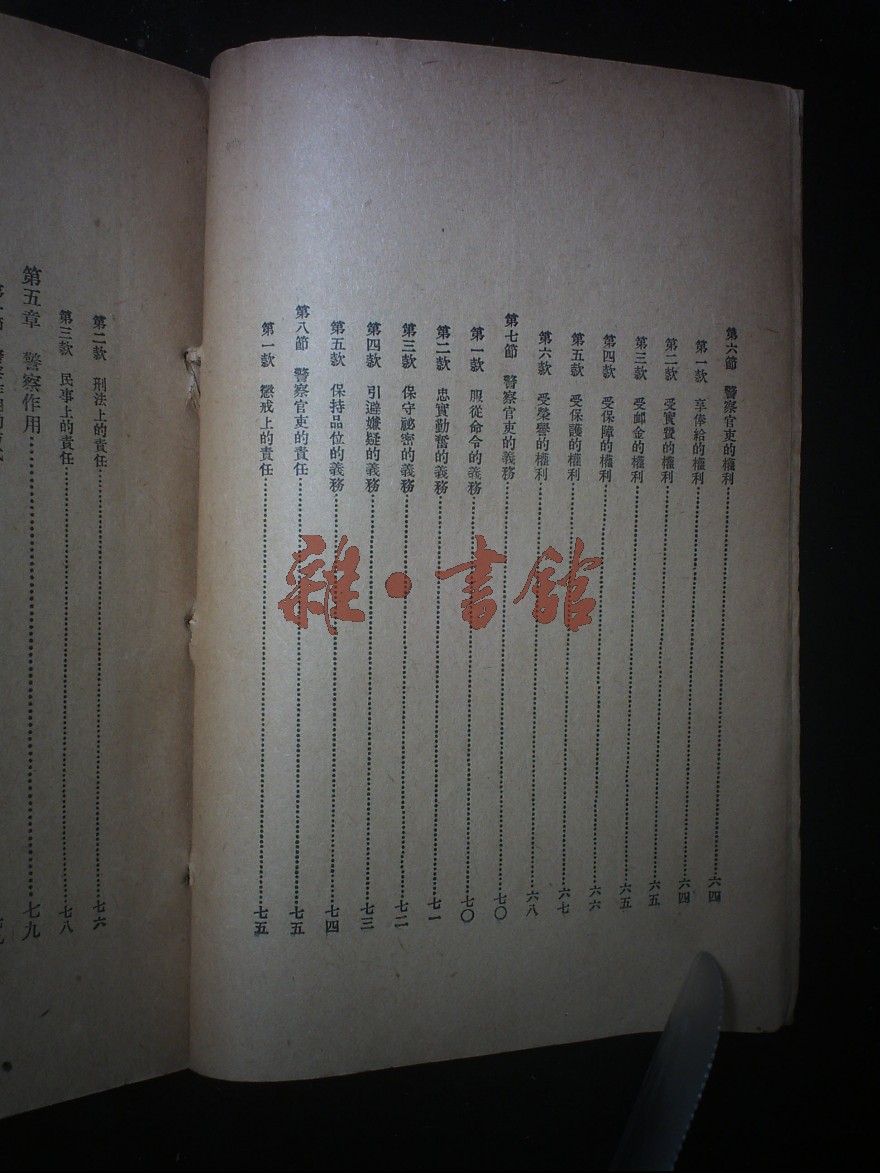 第六節　警察官吏的權利…………六四
第一款　享俸給的權利…………六四
第二款　受實費的權利…………六五
第三款　受卹金的權利…………六五
第四款　受保障的權利…………六六
第五款　受保護的權利…………六七
第六款　受榮譽的權利…………六八
第七節　警察官吏的義務…………七〇
第一款　服從命令的義務…………七〇
第二款　忠實勤奮的義務…………七一
第三款　保守祕密的義務…………七二
第四款　引避嫌疑的義務…………七三
第五款　保持品位的義務…………七四
第八節　警察官吏的責任…………七五
第一款　懲戒上的責任…………七五
第二款　刑法上的責任…………七六
第三款　民事上的責任…………七八
第五章　警察作用…………七九
雜·書館